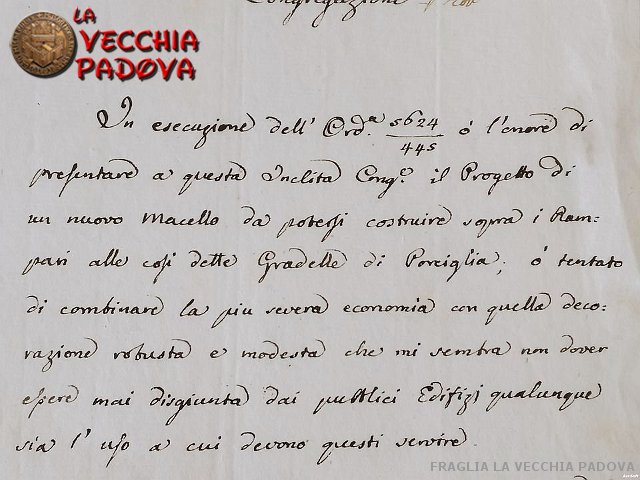 LA
VECCHIA
PADOVA
Congregazione
In esecuzione dell' Ord.a 5624/445 ò l'onore di
presentare a questa Inclita Cong.e il Progetto di
un nuovo Macello da potersi costruire sopra i Ram=
pari alle così dette Gradelle di Porciglia; ò tentato
di combinare la piu severa economia con quella deco=
razione robusta e modesta che mi sembra non dover
essere mai disgiunta dai pubblici Edifizj qualunque
sia l'uso a cui devono questi servire.
FRAGLIA LA VECCHIA PADOVA